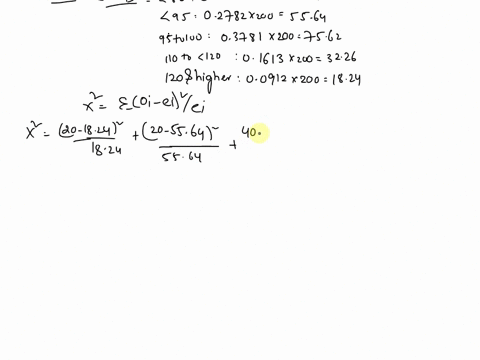 <95 : 0.2782×200 = 55.64
95to100 : 0.3781×200=75.62
110 to <120 : 0.1613×200=32.26
120 & higher : 0.0912×200=18.24
x² = Σ(oi-ei)²/ei
x² = (20-18.24)²/18.24 + (20-55.64)²/55.64 + 40.